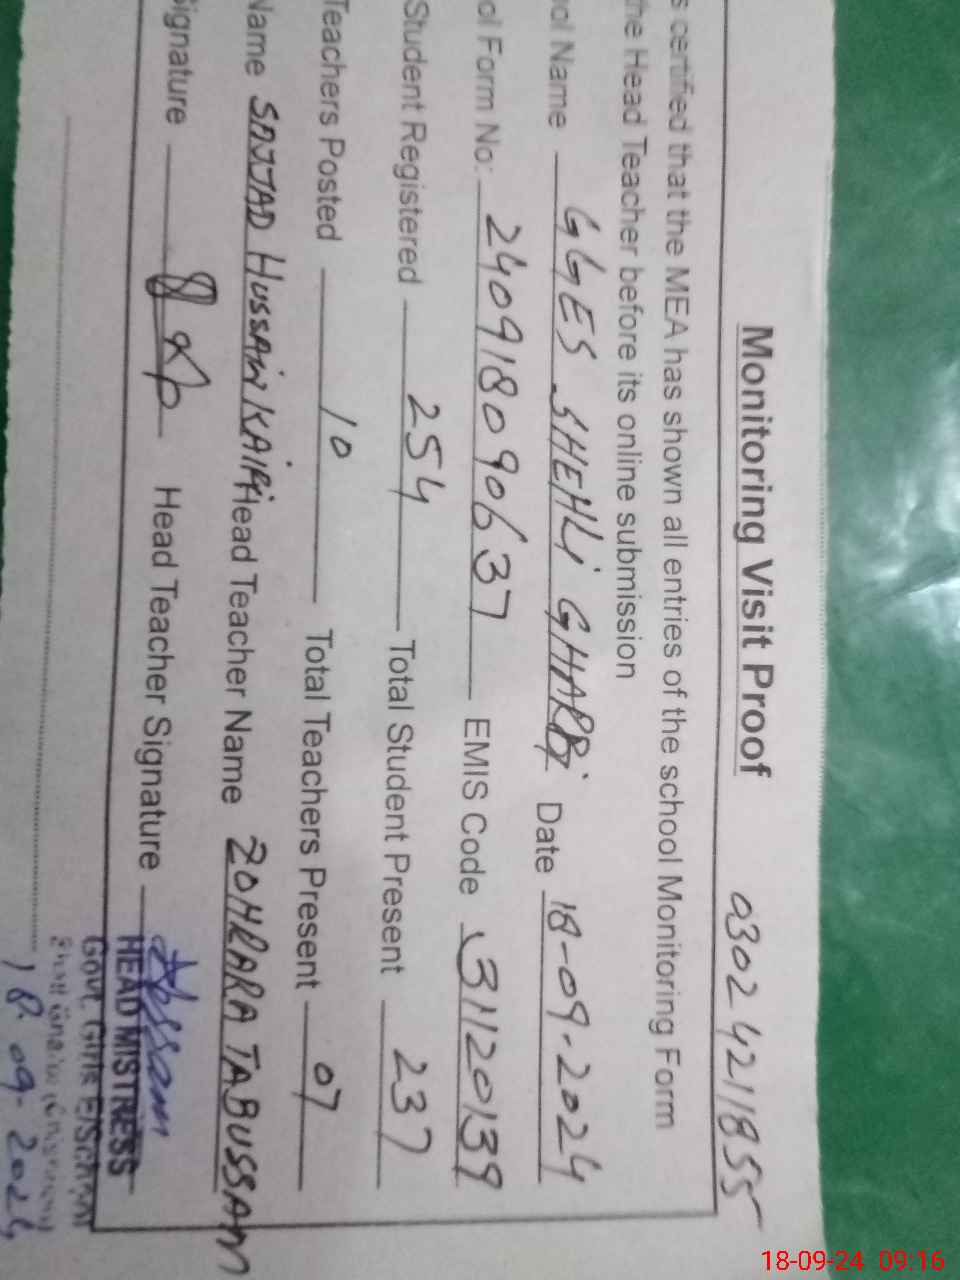 Monitoring Visit Proof 0302 4211855
s certified that the MEA has shown all entries of the school Monitoring Form
the Head Teacher before its online submission
ol Name GGES SHEHLi GHARBi Date 18-09-2024
ol Form No: 240918090637 EMIS Code 31120139
Student Registered 254 Total Student Present 237
Teachers Posted 10 Total Teachers Present 07
Name SAJJAD HUSSAiN Head Teacher Name ZOHRARA TABUSSAM
Signature Head Teacher Signature
HEAD MISTRESS
Govt. Girls E/School
18.09-2024
18-09-24 09:16